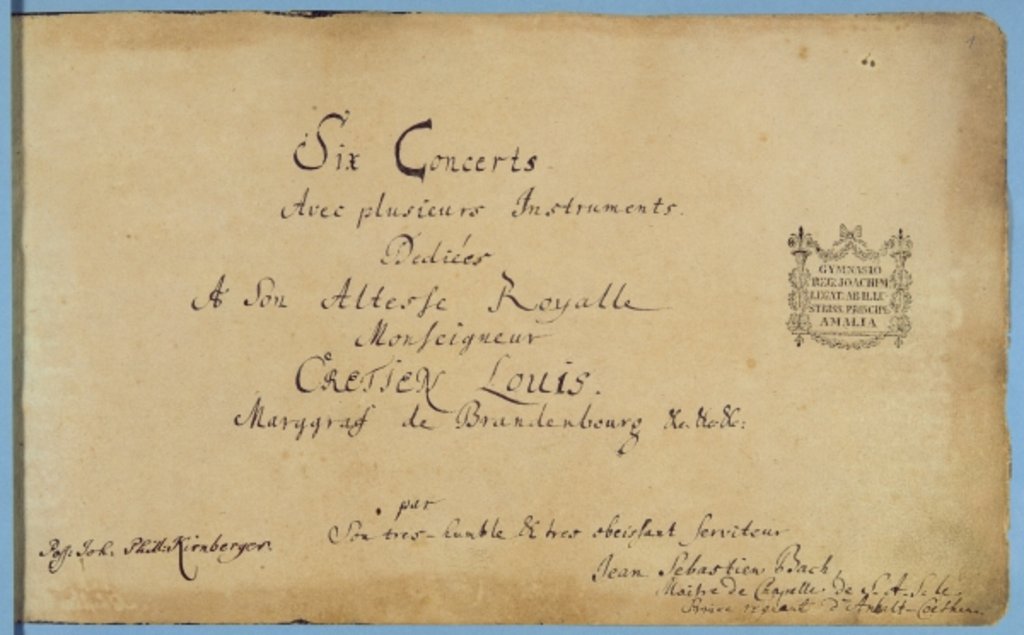 1
Six Concerts
Avec plusieurs Instruments.
Dediées
A Son Altesse Royalle
Monseigneur
CRETIEN Louis.
Marggraf de Brandenbourg &c. &c. &c:
par
Son tres-humble & tres obeissant serviteur
Jean Sebastien Bach,
Maitre de Chapelle de S. A. S. le
Prince regnant d'Anhalt-Coethen.
Poss: Joh. Phill: Kirnberger.
GYMNASIO
REG. JOACHIM
LEGAT. AB ILLU
STRISS. PRINCIPE
AMALIA